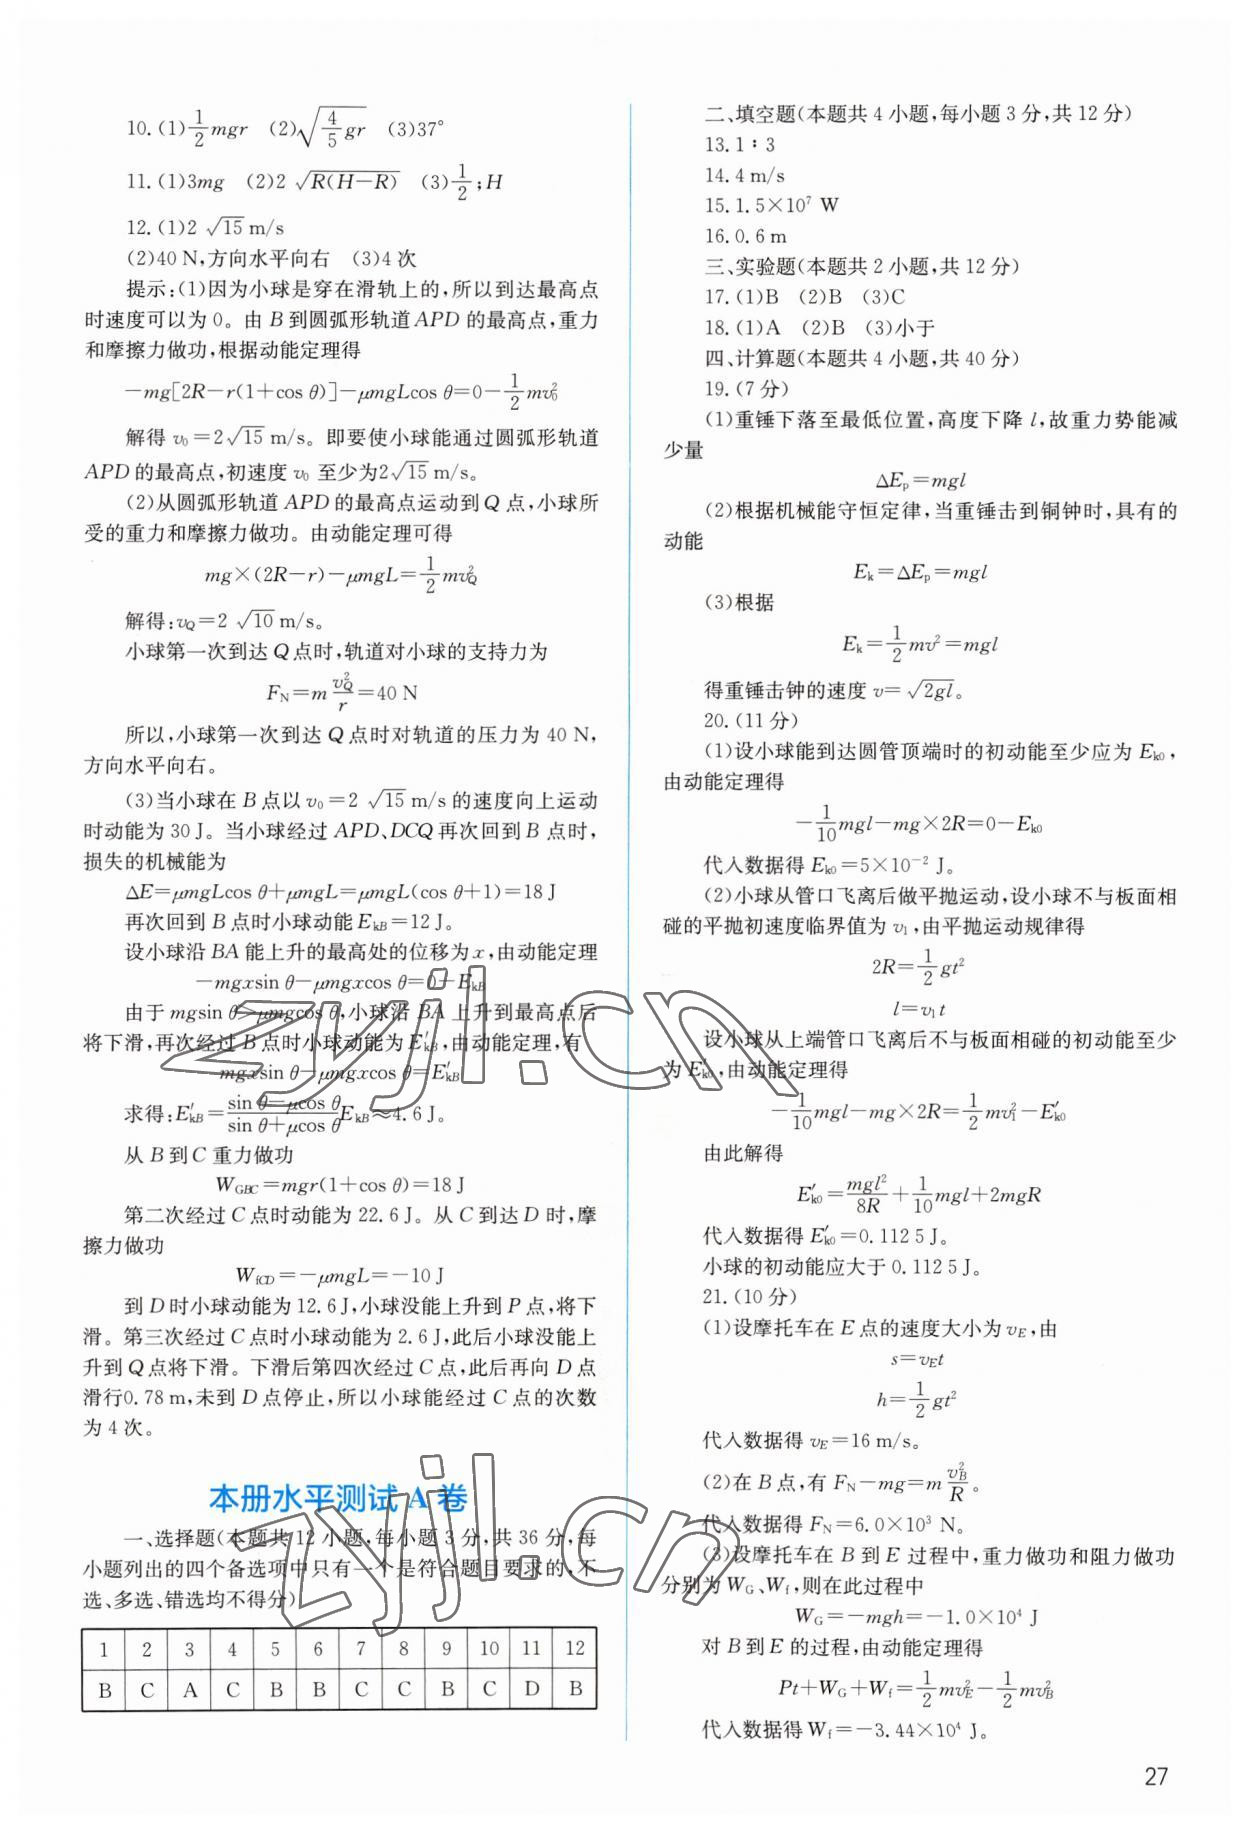 10.(1)½mgr (2)√(4/5 gr) (3)37°
11.(1)3mg (2)2√(R(H−R)) (3)½;H
12.(1)2√15 m/s
(2)40 N,方向水平向右 (3)4 次
提示:(1)因为小球是穿在滑轨上的,所以到达最高点
时速度可以为 0。由 B 到圆弧形轨道 APD 的最高点,重力
和摩擦力做功,根据动能定理得
−mg[2R−r(1+cos θ)]−μmgLcos θ=0−½mv₀²
解得 v₀=2√15 m/s。即要使小球能通过圆弧形轨道
APD 的最高点,初速度 v₀ 至少为2√15 m/s。
(2)从圆弧形轨道 APD 的最高点运动到 Q 点,小球所
受的重力和摩擦力做功。由动能定理可得
mg×(2R−r)−μmgL=½mv_Q²
解得:v_Q=2√10 m/s。
小球第一次到达 Q 点时,轨道对小球的支持力为
F_N=m v_Q²/r=40 N
所以,小球第一次到达 Q 点时对轨道的压力为 40 N,
方向水平向右。
(3)当小球在 B 点以 v₀=2√15 m/s 的速度向上运动
时动能为 30 J。当小球经过 APD、DCQ 再次回到 B 点时,
损失的机械能为
ΔE=μmgLcos θ+μmgL=μmgL(cos θ+1)=18 J
再次回到 B 点时小球动能 E_kB=12 J。
设小球沿 BA 能上升的最高处的位移为 x,由动能定理
−mgxsin θ−μmgxcos θ=0−E_kB
由于 mgsin θ>μmgcos θ,小球沿 BA 上升到最高点后
将下滑,再次经过 B 点时小球动能为 E′_kB,由动能定理,有
mgxsin θ−μmgxcos θ=E′_kB
求得:E′_kB=(sin θ−μcos θ)/(sin θ+μcos θ)E_kB≈4.6 J。
从 B 到 C 重力做功
W_GBC=mgr(1+cos θ)=18 J
第二次经过 C 点时动能为 22.6 J。从 C 到达 D 时,摩
擦力做功
W_fCD=−μmgL=−10 J
到 D 时小球动能为 12.6 J,小球没能上升到 P 点,将下
滑。第三次经过 C 点时小球动能为 2.6 J,此后小球没能上
升到 Q 点将下滑。下滑后第四次经过 C 点,此后再向 D 点
滑行0.78 m,未到 D 点停止,所以小球能经过 C 点的次数
为 4 次。
本册水平测试 A 卷
一、选择题(本题共 12 小题,每小题 3 分,共 36 分,每
小题列出的四个备选项中只有一个是符合题目要求的,不
选、多选、错选均不得分)
1 2 3 4 5 6 7 8 9 10 11 12
B C A C B B C C B C D B
二、填空题(本题共 4 小题,每小题 3 分,共 12 分)
13.1∶3
14.4 m/s
15.1.5×10⁷ W
16.0.6 m
三、实验题(本题共 2 小题,共 12 分)
17.(1)B (2)B (3)C
18.(1)A (2)B (3)小于
四、计算题(本题共 4 小题,共 40 分)
19.(7 分)
(1)重锤下落至最低位置,高度下降 l,故重力势能减
少量
ΔE_p=mgl
(2)根据机械能守恒定律,当重锤击到铜钟时,具有的
动能
E_k=ΔE_p=mgl
(3)根据
E_k=½mv²=mgl
得重锤击钟的速度 v=√(2gl)。
20.(11 分)
(1)设小球能到达圆管顶端时的初动能至少应为 E_k0,
由动能定理得
−1/10 mgl−mg×2R=0−E_k0
代入数据得 E_k0=5×10⁻² J。
(2)小球从管口飞离后做平抛运动,设小球不与板面相
碰的平抛初速度临界值为 v₁,由平抛运动规律得
2R=½gt²
l=v₁t
设小球从上端管口飞离后不与板面相碰的初动能至少
为 E′_k0,由动能定理得
−1/10 mgl−mg×2R=½mv₁²−E′_k0
由此解得
E′_k0=mgl²/8R+1/10 mgl+2mgR
代入数据得 E′_k0=0.112 5 J。
小球的初动能应大于 0.112 5 J。
21.(10 分)
(1)设摩托车在 E 点的速度大小为 v_E,由
s=v_E t
h=½gt²
代入数据得 v_E=16 m/s。
(2)在 B 点,有 F_N−mg=m v_B²/R。
代入数据得 F_N=6.0×10³ N。
(3)设摩托车在 B 到 E 过程中,重力做功和阻力做功
分别为 W_G、W_f,则在此过程中
W_G=−mgh=−1.0×10⁴ J
对 B 到 E 的过程,由动能定理得
Pt+W_G+W_f=½mv_E²−½mv_B²
代入数据得 W_f=−3.44×10⁴ J。
27
zyjl.cn
zyjl.cn